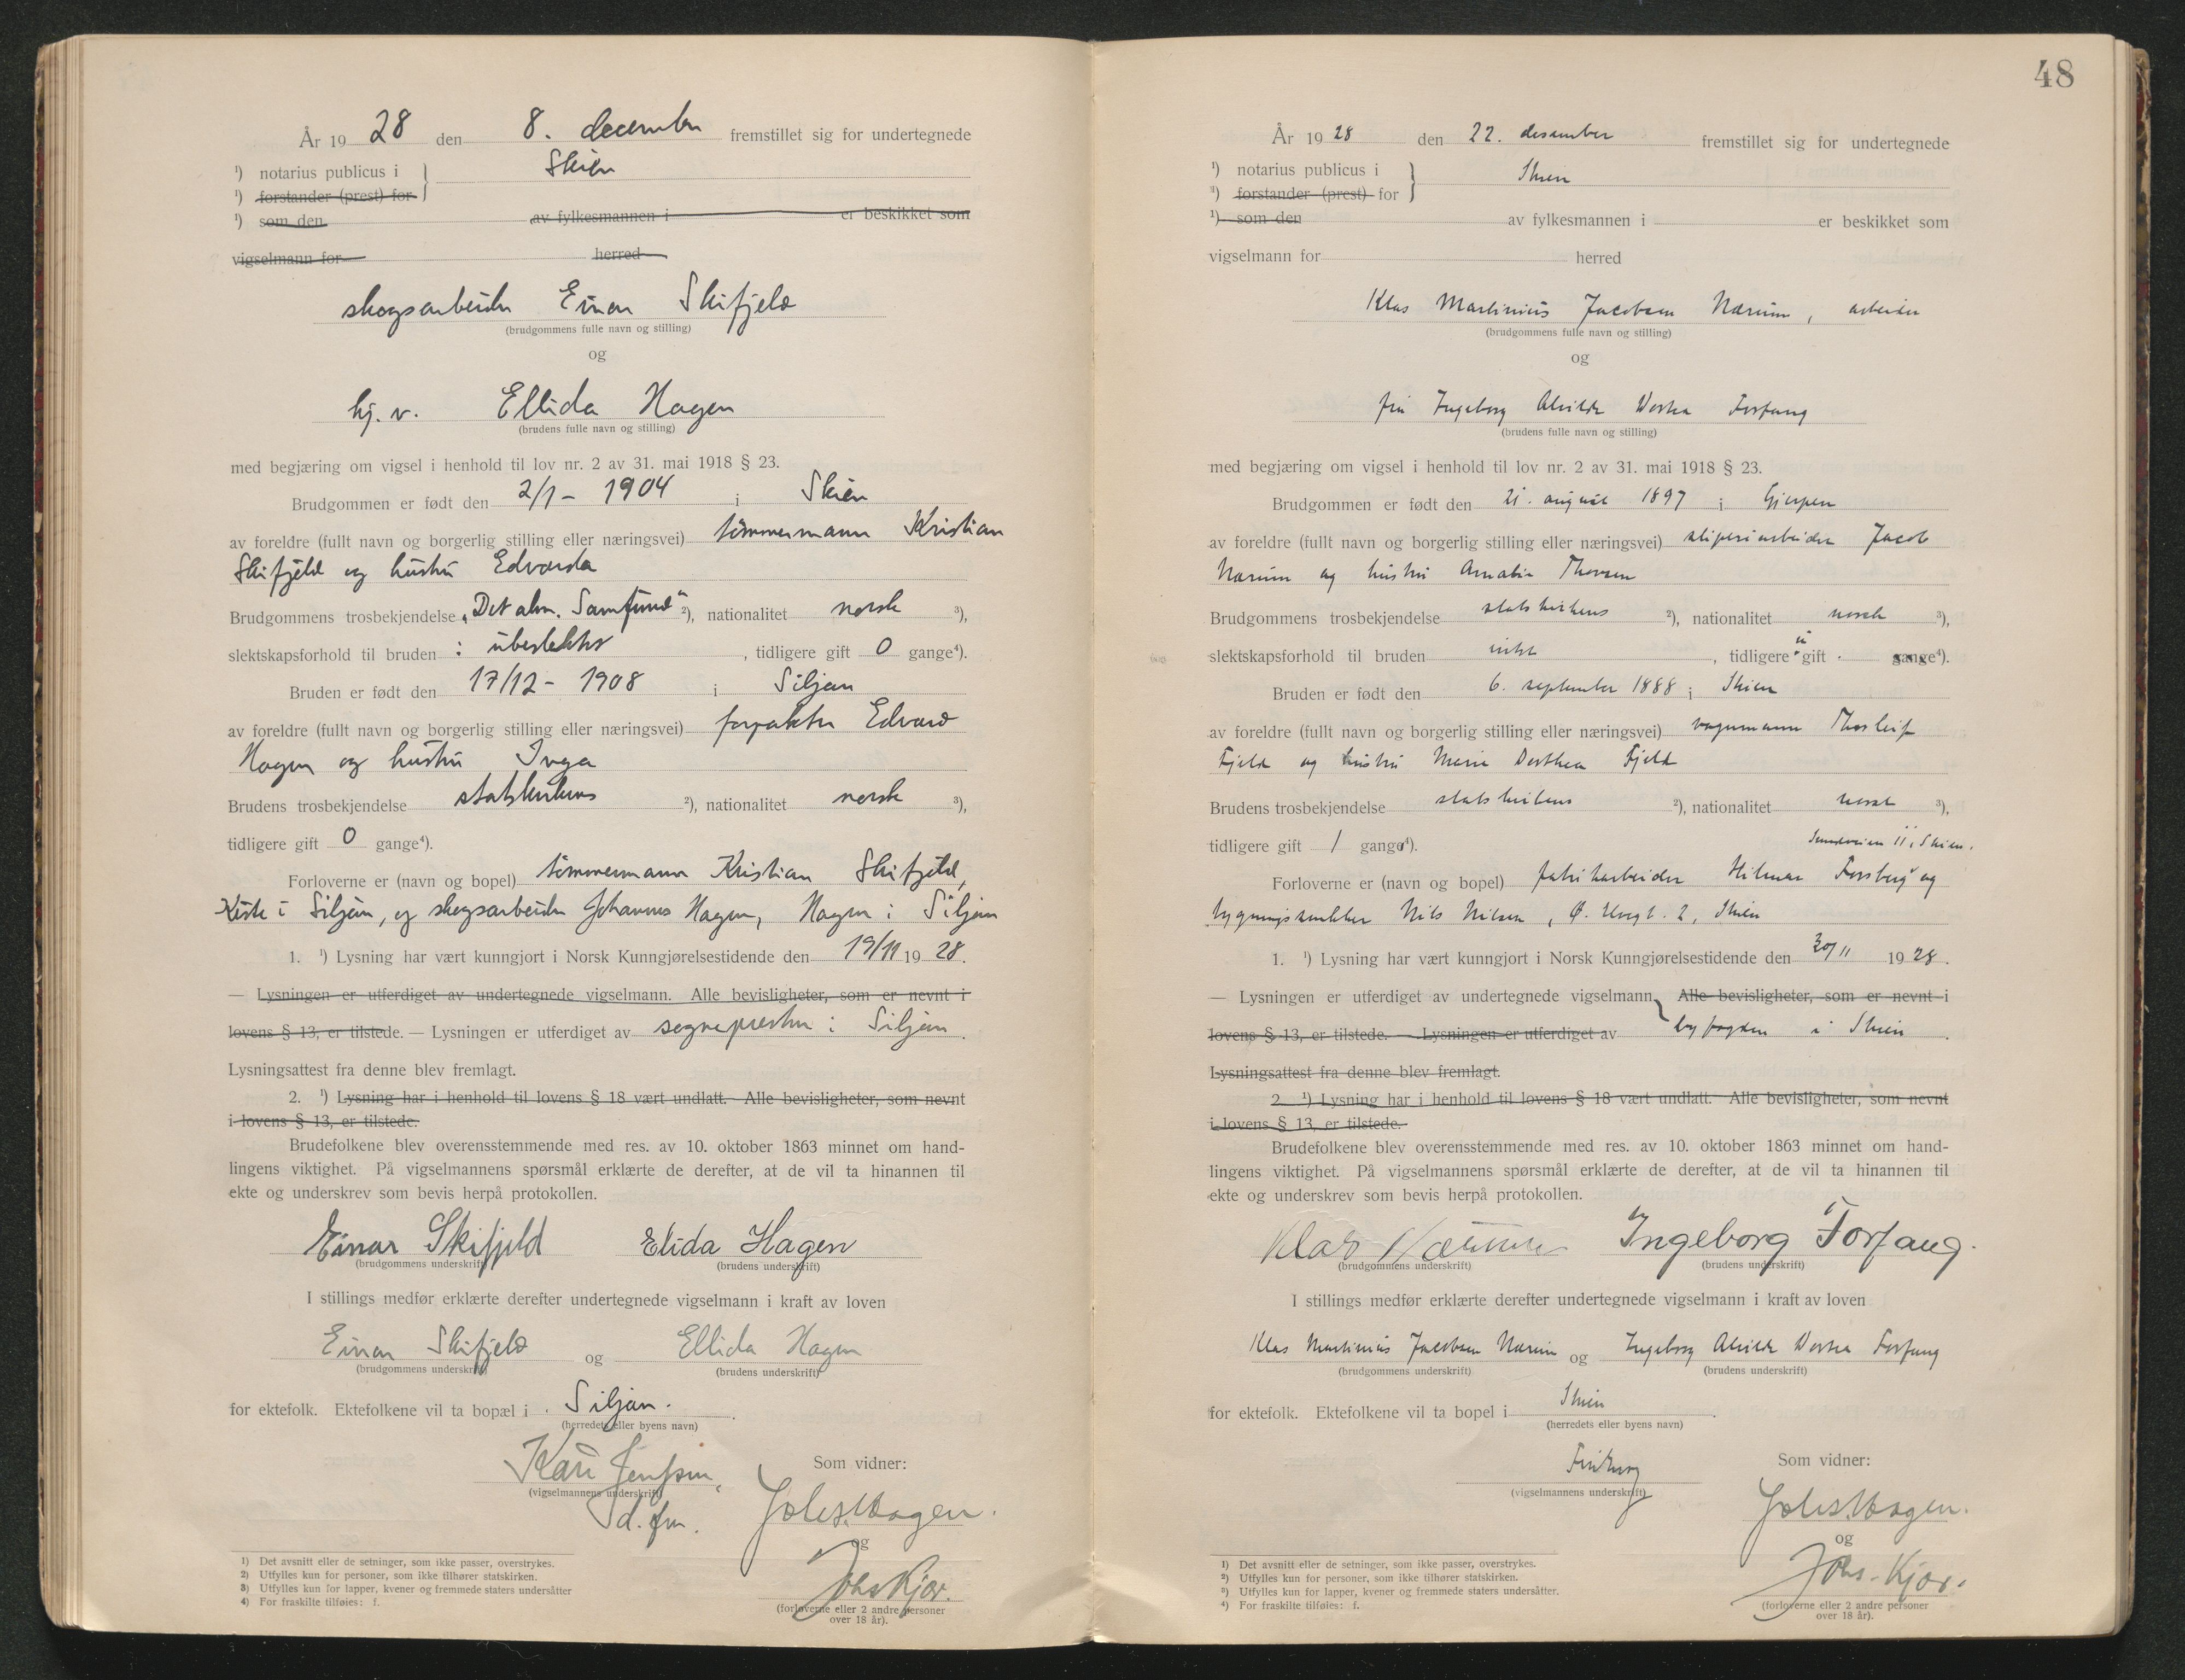 År 19 28 den 8. december fremstillet sig for undertegnede
¹) notarius publicus i } Skien
¹) forstander (prest) for
¹) som den av fylkesmannen i er beskikket som
vigselmann for herred
skogsarbeider Einar Skifjeld
(brudgommens fulle navn og stilling)
og
hj. v. Ellida Hagen
(brudens fulle navn og stilling)
med begjæring om vigsel i henhold til lov nr. 2 av 31. mai 1918 § 23.
Brudgommen er født den 2/1 - 1904 i Skien
av foreldre (fullt navn og borgerlig stilling eller næringsvei) tømmermann Kristian
Skifjeld og hustru Edvarda
Brudgommens trosbekjendelse „Det alm. Samfund" ²), nationalitet norsk ³),
slektskapsforhold til bruden : ubeslektet, tidligere gift 0 gange⁴).
Bruden er født den 17/12 - 1908 i Siljan
av foreldre (fullt navn og borgerlig stilling eller næringsvei) forpakter Edvard
Hagen og hustru Inga
Brudens trosbekjendelse statskirkens ²), nationalitet norsk ³),
tidligere gift 0 gange⁴).
Forloverne er (navn og bopel) tømmermann Kristian Skifjeld,
Kiste i Siljan, og skogsarbeider Johannes Hagen, Hagen i Siljan
1. ¹) Lysning har vært kunngjort i Norsk Kunngjørelsestidende den 19/11 19 28.
— Lysningen er utferdiget av undertegnede vigselmann. Alle bevisligheter, som er nevnt i
lovens § 13, er tilstede. — Lysningen er utferdiget av sognepresten i Siljan.
Lysningsattest fra denne blev fremlagt.
2. ¹) Lysning har i henhold til lovens § 18 vært undlatt. Alle bevisligheter, som nevnt
i lovens § 13, er tilstede.
Brudefolkene blev overensstemmende med res. av 10. oktober 1863 minnet om hand-
lingens viktighet. På vigselmannens spørsmål erklærte de derefter, at de vil ta hinannen til
ekte og underskrev som bevis herpå protokollen.
Einar Skifjeld Elida Hagen
(brudgommens underskrift) (brudens underskrift)
I stillings medfør erklærte derefter undertegnede vigselmann i kraft av loven
Einar Skifjeld og Ellida Hagen
(brudgommens underskrift) (brudens underskrift)
for ektefolk. Ektefolkene vil ta bopæl i Siljan.
(herredets eller byens navn)
Kåre Jenssen,
(vigselmannens underskrift)
d. fm.
Som vidner:
Johs. Hagen.
og
Johs Kjær.
(forloverne eller 2 andre personer
over 18 år).
¹) Det avsnitt eller de setninger, som ikke passer, overstrykes.
²) Utfylles kun for personer, som ikke tilhører statskirken.
³) Utfylles kun for lapper, kvener og fremmede staters undersåtter
⁴) For fraskilte tilføies: f.
48
År 19 28 den 22. desember fremstillet sig for undertegnede
¹) notarius publicus i } Skien
¹) forstander (prest) for
¹) som den av fylkesmannen i er beskikket som
vigselmann for herred
Klas Martinius Jacobsen Nærum, arbeider
(brudgommens fulle navn og stilling)
og
fru Ingeborg Alvilde Dortea Forfang
(brudens fulle navn og stilling)
med begjæring om vigsel i henhold til lov nr. 2 av 31. mai 1918 § 23.
Brudgommen er født den 21. august 1897 i Gjerpen
av foreldre (fullt navn og borgerlig stilling eller næringsvei) sliperiarbeider Jacob
Nærum og hustru Amalie Thorsen
Brudgommens trosbekjendelse statskirkens ²), nationalitet norsk ³),
slektskapsforhold til bruden intet, tidligere gift gange⁴).
Bruden er født den 6. september 1888 i Skien
av foreldre (fullt navn og borgerlig stilling eller næringsvei) vognmann Thorleif
Fjeld og hustru Marie Dorthea Fjeld
Brudens trosbekjendelse statskirkens ²), nationalitet norsk ³),
tidligere gift 1 gange⁴). 11, Skien.
Forloverne er (navn og bopel) fabrikarbeider Hilmar Forsberg og
bygningssnekker Nils Nilsen, 2, Skien
1. ¹) Lysning har vært kunngjort i Norsk Kunngjørelsestidende den 30/11 19 28.
— Lysningen er utferdiget av undertegnede vigselmann, Alle bevisligheter, som er nevnt i
lovens § 13, er tilstede. — Lysningen er utferdiget av byfogden i Skien.
Lysningsattest fra denne blev fremlagt.
2. ¹) Lysning har i henhold til lovens § 18 vært undlatt. Alle bevisligheter, som nevnt
i lovens § 13, er tilstede.
Brudefolkene blev overensstemmende med res. av 10. oktober 1863 minnet om hand-
lingens viktighet. På vigselmannens spørsmål erklærte de derefter, at de vil ta hinannen til
ekte og underskrev som bevis herpå protokollen.
Klas Nærum Ingeborg Forfang.
(brudgommens underskrift) (brudens underskrift)
I stillings medfør erklærte derefter undertegnede vigselmann i kraft av loven
Klas Martinius Jacobsen Nærum og Ingeborg Alvilde Dortea Forfang
(brudgommens underskrift) (brudens underskrift)
for ektefolk. Ektefolkene vil ta bopel i Skien.
(herredets eller byens navn)
(vigselmannens underskrift)
Som vidner:
Johs. Hagen.
og
Johs. Kjær.
(forloverne eller 2 andre personer
over 18 år).
¹) Det avsnitt eller de setninger, som ikke passer, overstrykes.
²) Utfylles kun for personer, som ikke tilhører statskirken.
³) Utfylles kun for lapper, kvener og fremmede staters undersåtter.
⁴) For fraskilte tilføies: f.